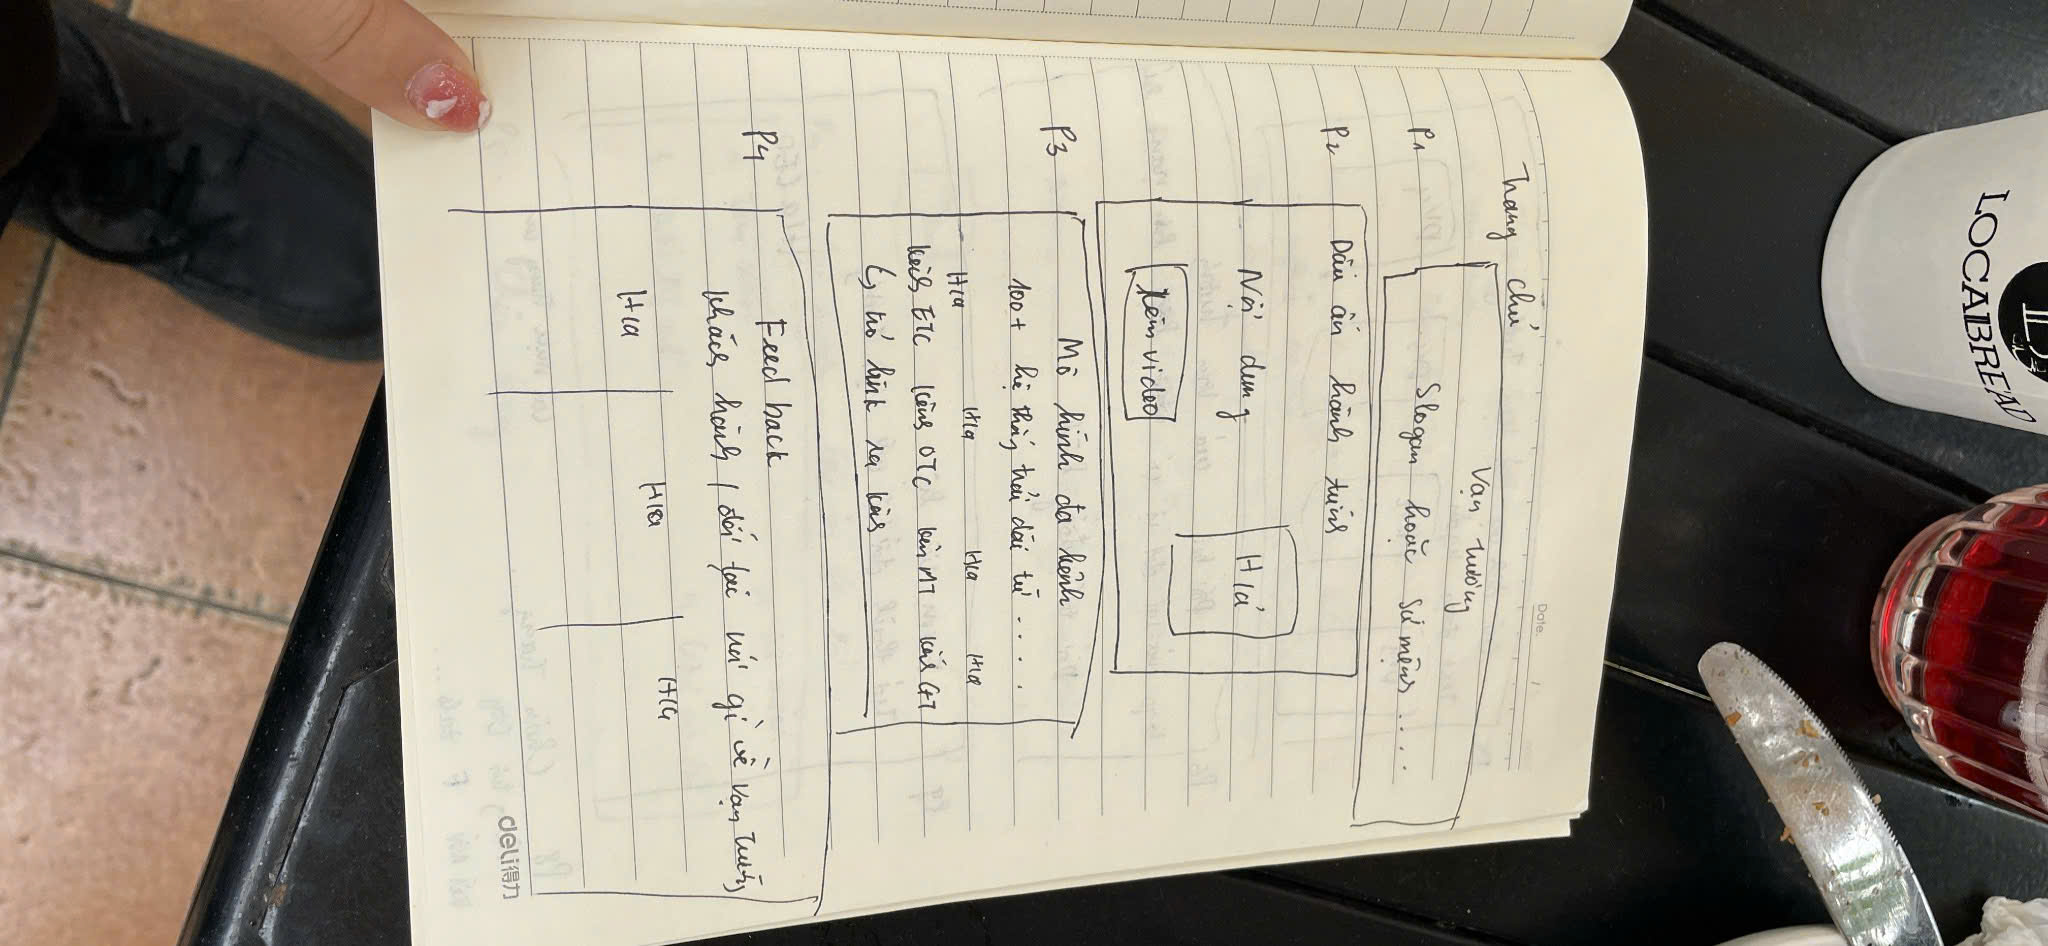 Date.
Trang chủ
P1
Vạn Tường
Slogan hoặc sứ mệnh ....
P2
Dấu ấn hành trình
Nội dung
H/ả
Xem video
P3
Mô hình đa kênh
100+ hệ thống trải dài từ ....
H/a H/a H/a H/a
kênh ETC kênh OTC kênh MT kênh GT
P4
Feedback
khách hàng / đối tác nói gì về Vạn Tường
H/a H/a H/a
deli得力
LOCABREAD